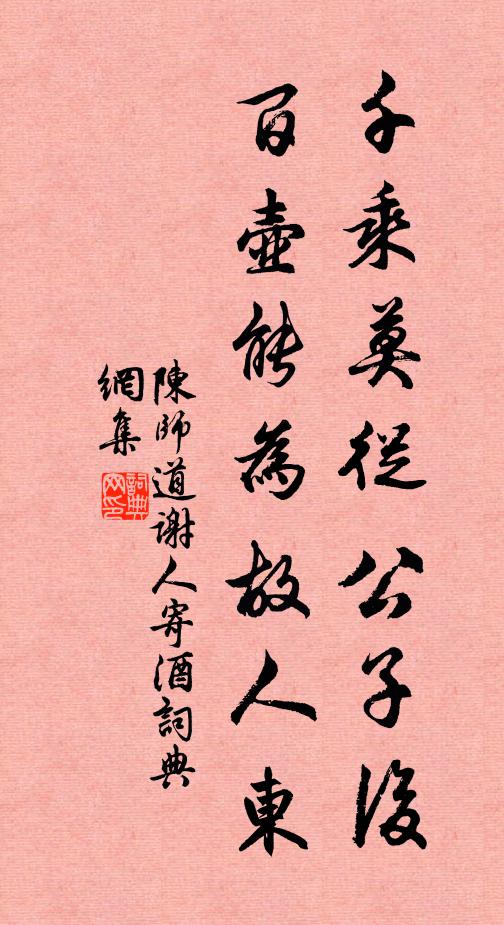 千乘莫從公子後
百壺能為故人東
陳師道謝人寄酒詞典
網集
詞典
网印